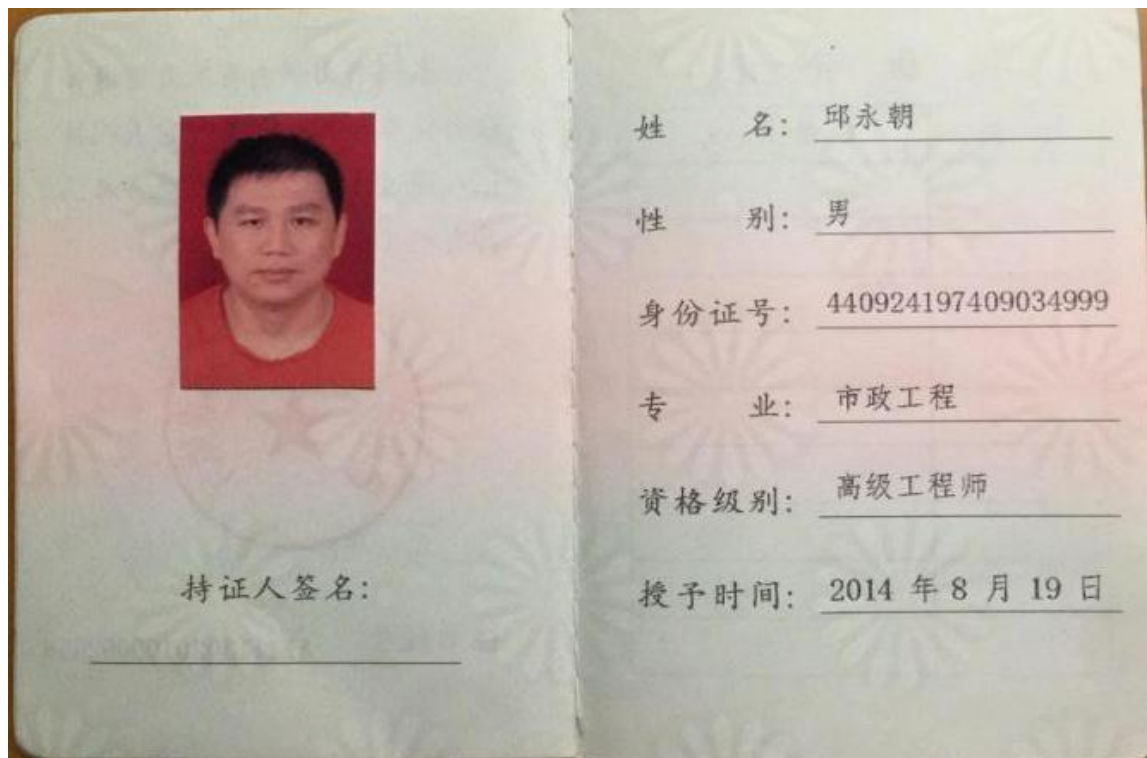 持证人签名:
姓名: 邱永朝
性别: 男
身份证号: 440924197409034999
专业: 市政工程
资格级别: 高级工程师
授予时间: 2014 年 8 月 19 日